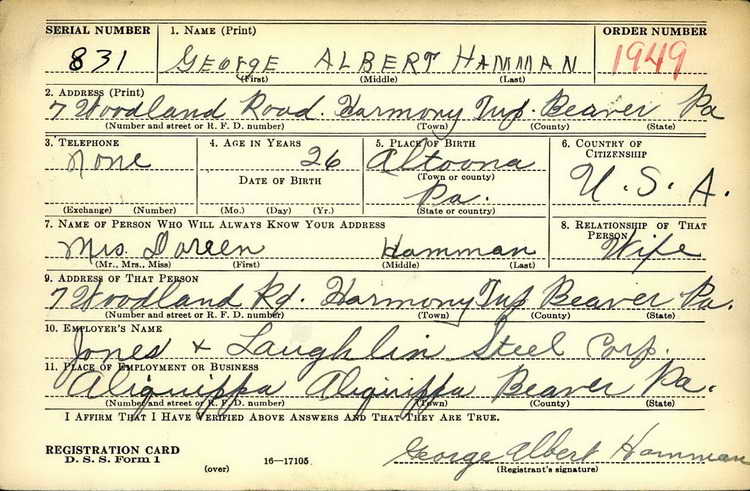 SERIAL NUMBER 1. NAME (Print) ORDER NUMBER
831 GEORGE ALBERT HAMMAN 1949
(First) (Middle) (Last)
2. ADDRESS (Print)
7 Woodland Road Harmony Twp. Beaver Pa
(Number and street or R. F. D. number) (Town) (County) (State)
3. TELEPHONE 4. AGE IN YEARS 5. PLACE OF BIRTH 6. COUNTRY OF CITIZENSHIP
None 26 Altoona
(Town or county)
DATE OF BIRTH Pa. U. S. A.
(Exchange) (Number) (Mo.) (Day) (Yr.) (State or country)
7. NAME OF PERSON WHO WILL ALWAYS KNOW YOUR ADDRESS 8. RELATIONSHIP OF THAT PERSON
Mrs. Doreen Hamman Wife
(Mr., Mrs., Miss) (First) (Middle) (Last)
9. ADDRESS OF THAT PERSON
7 Woodland Rd. Harmony Twp Beaver Pa.
(Number and street or R. F. D. number) (Town) (County) (State)
10. EMPLOYER'S NAME
Jones + Laughlin Steel Corp.
11. PLACE OF EMPLOYMENT OR BUSINESS
Aliquippa Aliquippa Beaver Pa.
(Number and street or R. F. D. number) (Town) (County) (State)
I AFFIRM THAT I HAVE VERIFIED ABOVE ANSWERS AND THAT THEY ARE TRUE.
REGISTRATION CARD George Albert Hamman
D. S. S. Form 1 (over) 16—17105 (Registrant's signature)